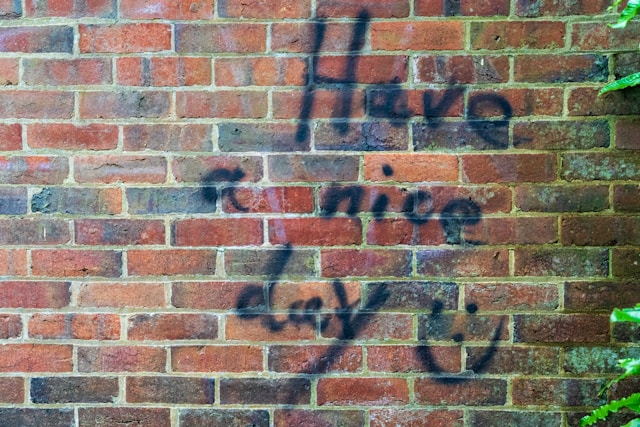 Have
a nice
day